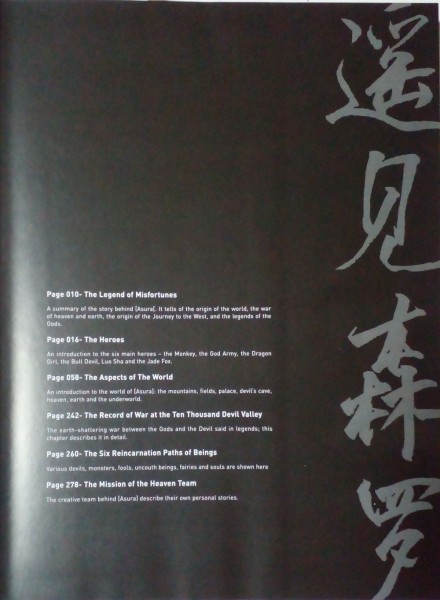 遥见森罗
Page 010- The Legend of Misfortunes
A summary of the story behind [Asura]. It tells of the origin of the world, the war
of heaven and earth, the origin of the Journey to the West, and the legends of the
Gods.
Page 016- The Heroes
An introduction to the six main heroes – the Monkey, the God Army, the Dragon
Girl, the Bull Devil, Luo Sha and the Jade Fox.
Page 058- The Aspects of The World
An introduction to the world of [Asura]: the mountains, fields, palace, devil's cave,
heaven, earth and the underworld.
Page 242- The Record of War at the Ten Thousand Devil Valley
The earth-shattering war between the Gods and the Devil said in legends; this
chapter describes it in detail.
Page 260- The Six Reincarnation Paths of Beings
Various devils, monsters, fools, uncouth beings, fairies and souls are shown here
Page 278- The Mission of the Heaven Team
The creative team behind [Asura] describe their own personal stories.